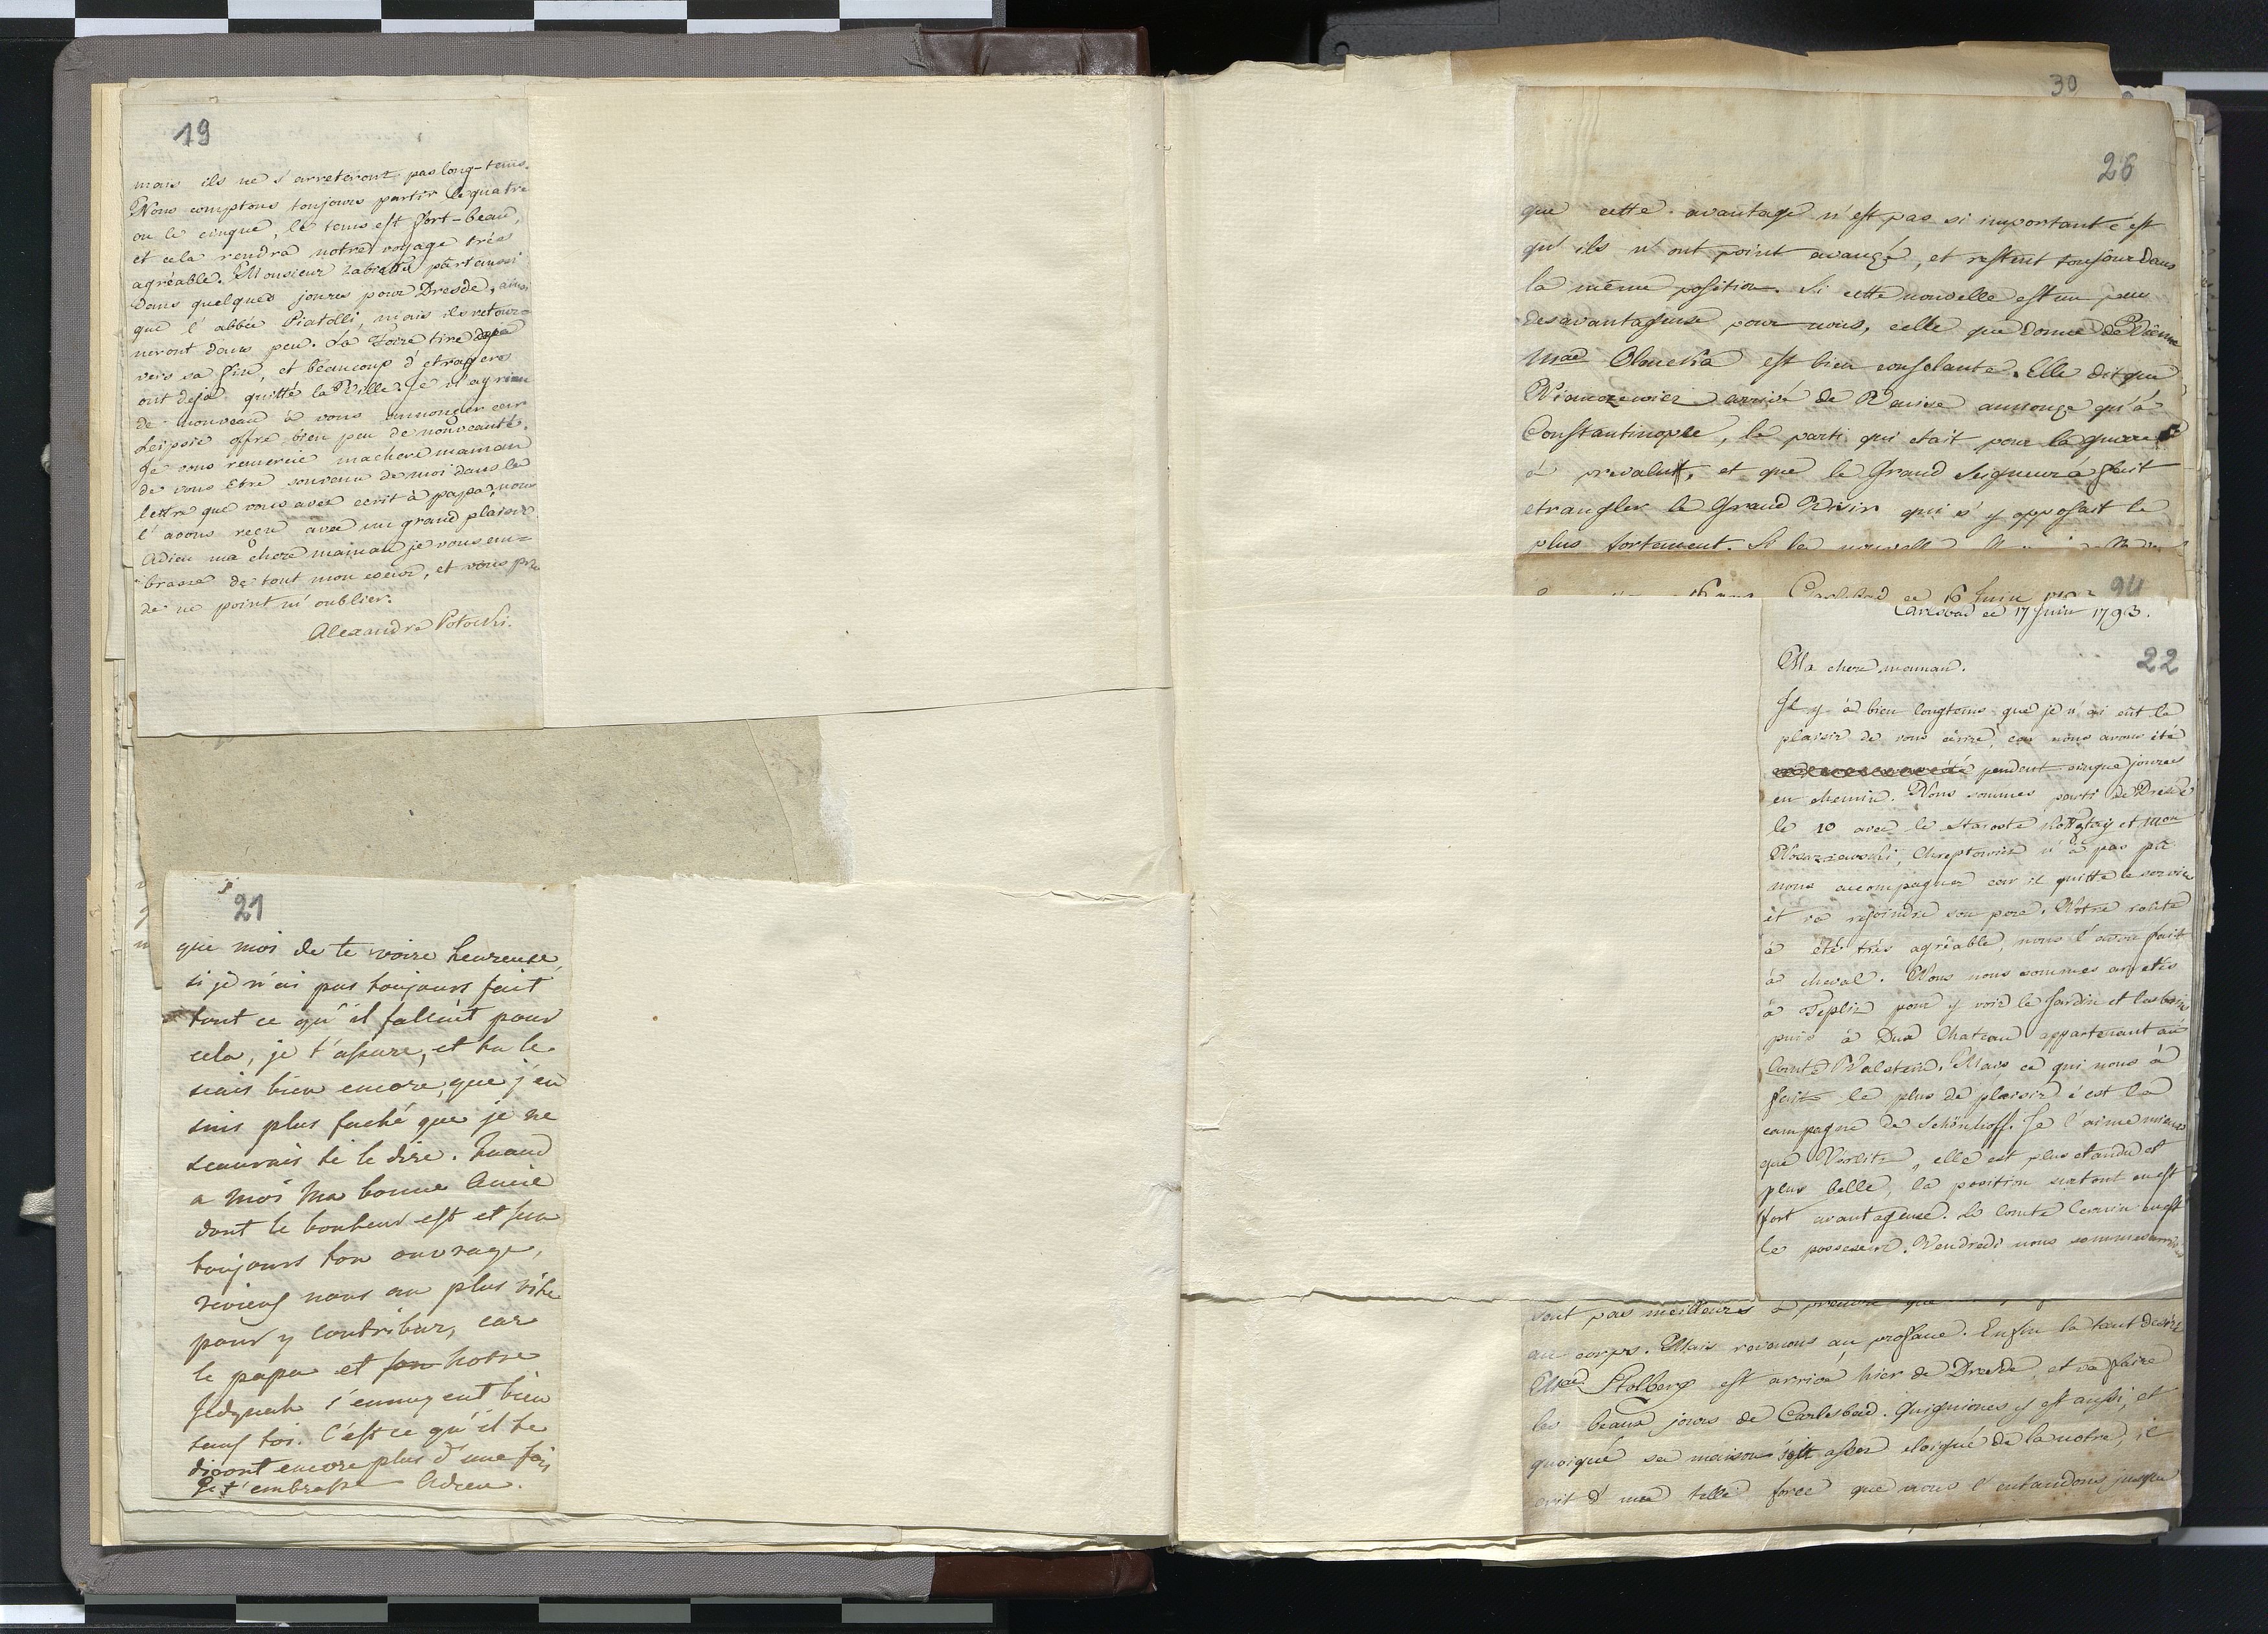 19
mais ils ne s'arreteront pas long-tems.
Nous comptons toujours partir le quatre
ou le cinque, le tems est fort-beau,
et cela rendra notre voyage très
agréable. Monsieur part aussi
dans quelques jours pour Dresde, ainsi
que l'abbée Piatolli, mais ils retour=
neront dans peu. La Foire tire
vers sa fin, et beaucoup d'etragers
ont deja quitté la Ville. Je n'ay rien
de nouveau à vous annonçer car
Leipsic offre bien peu de nouveauté.
Je vous remercie machere maman
de vous être souvenu de moi dans la
lettre que vous avez ecrit à papa, nous
l'avons reçu avec un grand plaisir
Adieu ma chere maman je vous em=
brasse de tout mon coeur, et vous prie
de ne point m'oublier.
Alexandre Potocki.
21
que moi de te voire heureuse,
si je n'ai pas toujours fait
tout ce qu'il falloit pour
cela, je t'assure, et tu le
scais bien encore, que j'en
suis plus faché que je ne
scaurais te le dire. Quand
a moi Ma bonne Amie
dont le bonheur est et sera
toujours ton ouvrage,
reviens nous au plus vite
pour y contribuer, car
le papa et son notre
s'ennuyent bien
sans toi. C'est ce qu'il te
diront encore plus d'une fois
Je t'embrasse Adieu.
30
26
que cette avantage n'est pas si important c'est
qu'ils n'ont point avançé, et restent toujour dans
la même position. Si cette nouvelle est un peu
desavantageuse pour nous, celle que donne de Vienne
Mad est bien consolante. Elle dit que
arrivé de Russie annonçe qu'à
Constantinople, le parti qui etait pour la guerre
à prevalut, et que le Grand Seigneur à fait
etrangler le Grand Visir qui s'y opposait le
plus fortement. Si les nouvelles
Carlsbad ce 16 Juin 94
Carlsbad ce 17 Juin 1793.
22
Ma chere maman.
Il y à bien longtems que je n'ai eut le
plaisir de vous écrire, car nous avons été
pendent cinque jours
en chemin. Nous sommes parti de Dresde
le 10 avec le Staroste et Mon
Chreptowicz n'à pas pû
nous accompagner car il quitte le service
et va rejoindre son pere. Notre route
à été très agréable, nous l'avon fait
à cheval. Nous nous sommes arretés
à Teplitz pour y voir le Jardin et les bains
puis à Dux Chateau appartenant au
Comte Walstein. Mais ce qui nous à
fait le plus de plaisir c'est la
campagne de Schönhoff. Je l'aime mieux
que Vörlitz, elle est plus etandu et
plus belle, la position surtout en est
fort avantageuse. Le Comte Cernin en est
le possesseur. Vendredi nous sommes arrivés
sont pas meilleurs à prendre que
au corps. Mais revenons au profane. Enfin la tant desiré
Mad Stolberg est arrivé hier de Dresde, et va faire
les beaux jours de Carlesbad. Quiguiones y est aussi, et
quoique sa maison soit assez eloigné de la notre, il
crit d'une telle force que nous l'entandons jusqu